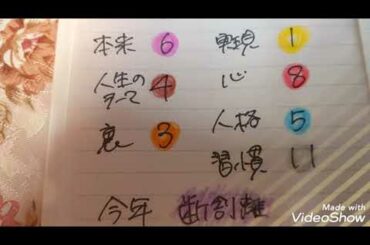 本来 6
人生の
テーマ 4
裏 3
実現 1
心 8
人格 5
習慣 11
今年
Made with
VideoShow